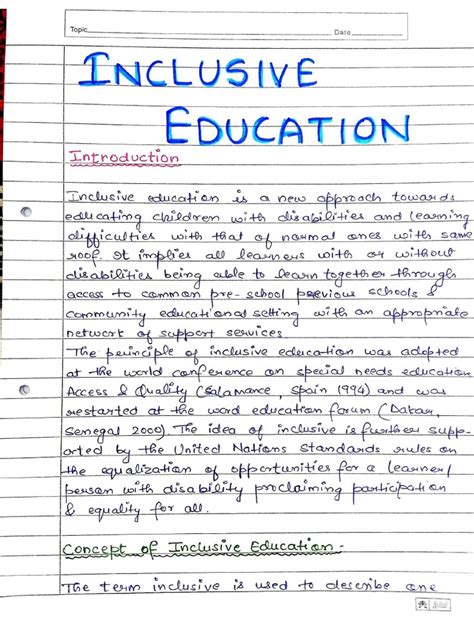 Topic
Date
INCLUSIVE
EDUCATION
Introduction
Inclusive education is a new approach towards
educating children with disabilities and learning
difficulties with that of normal ones with same
roof. It implies all learners with or without
disabilities being able to learn together through
access to common pre-school previous schools &
community educational setting with an appropriate
network of support services.
The principle of inclusive education was adopted
at the world conference on special needs education
Access & Quality (Salamance, Spain 1994) and was
restarted at the word education forum (Dakar,
Senegal 2000). The idea of inclusive is further supp-
orted by the United Nations Standards rules on
the equalization of opportunities for a learner/
person with disability proclaiming participation
& equality for all.
Concept of Inclusive Education -
The term inclusive is used to describe one